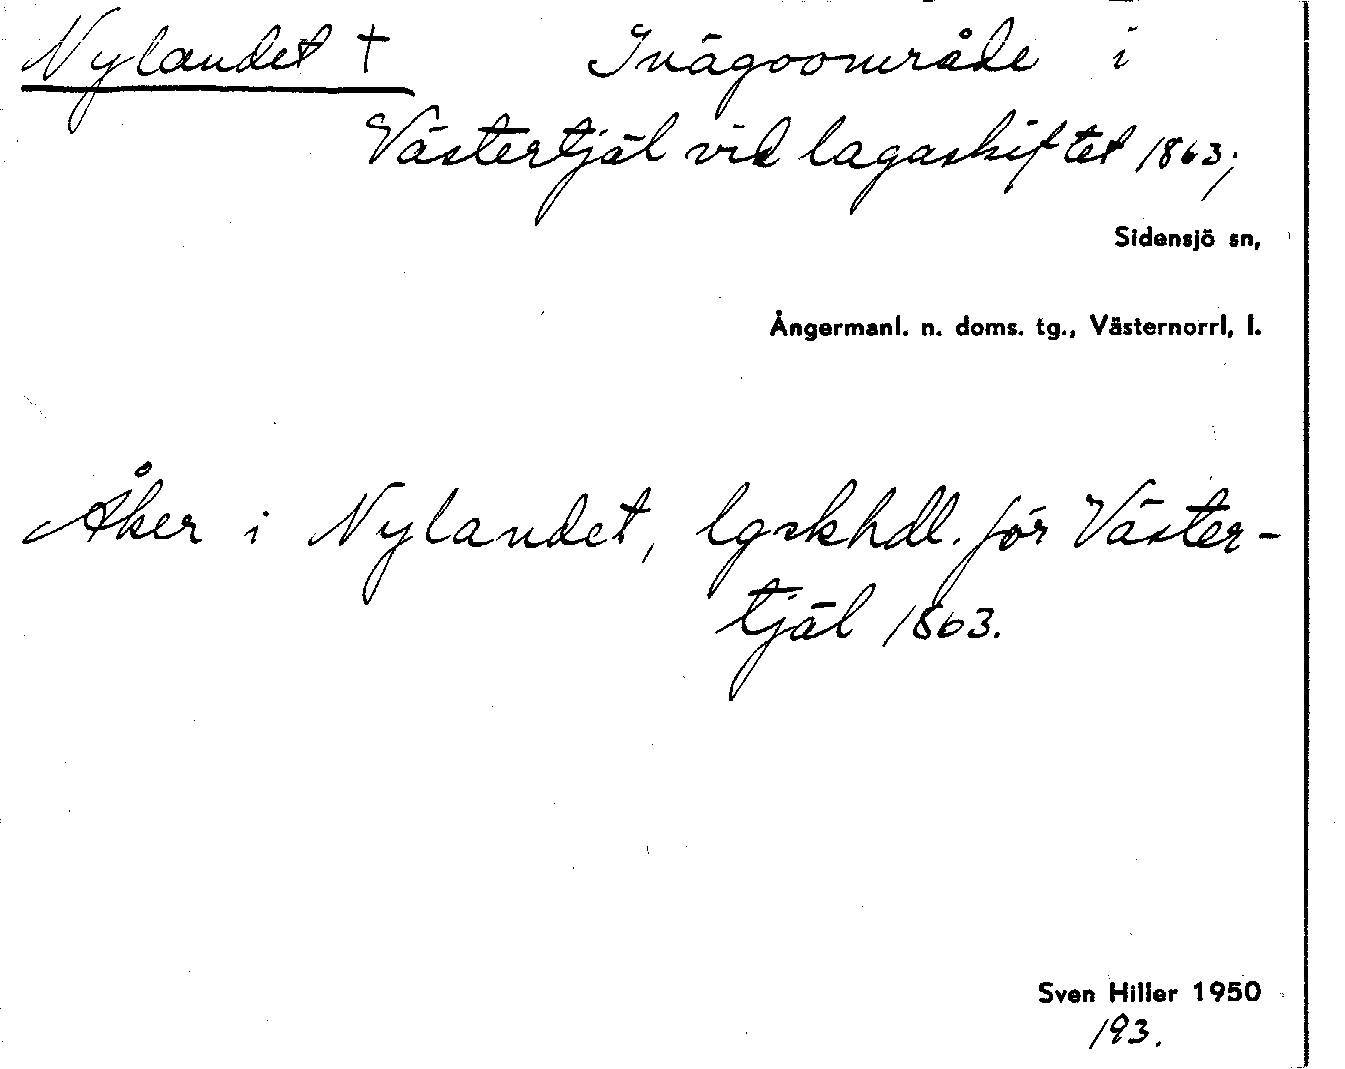 Nylandet † Inägoområde i
Västertjäl vid lagaskiftet 1863;
Sidensjö sn,
Ångermanl. n. doms. tg., Västernorrl, l.
Åker i Nylandet, lgskhdl. för Väster-
tjäl 1863.
Sven Hiller 1950
193.